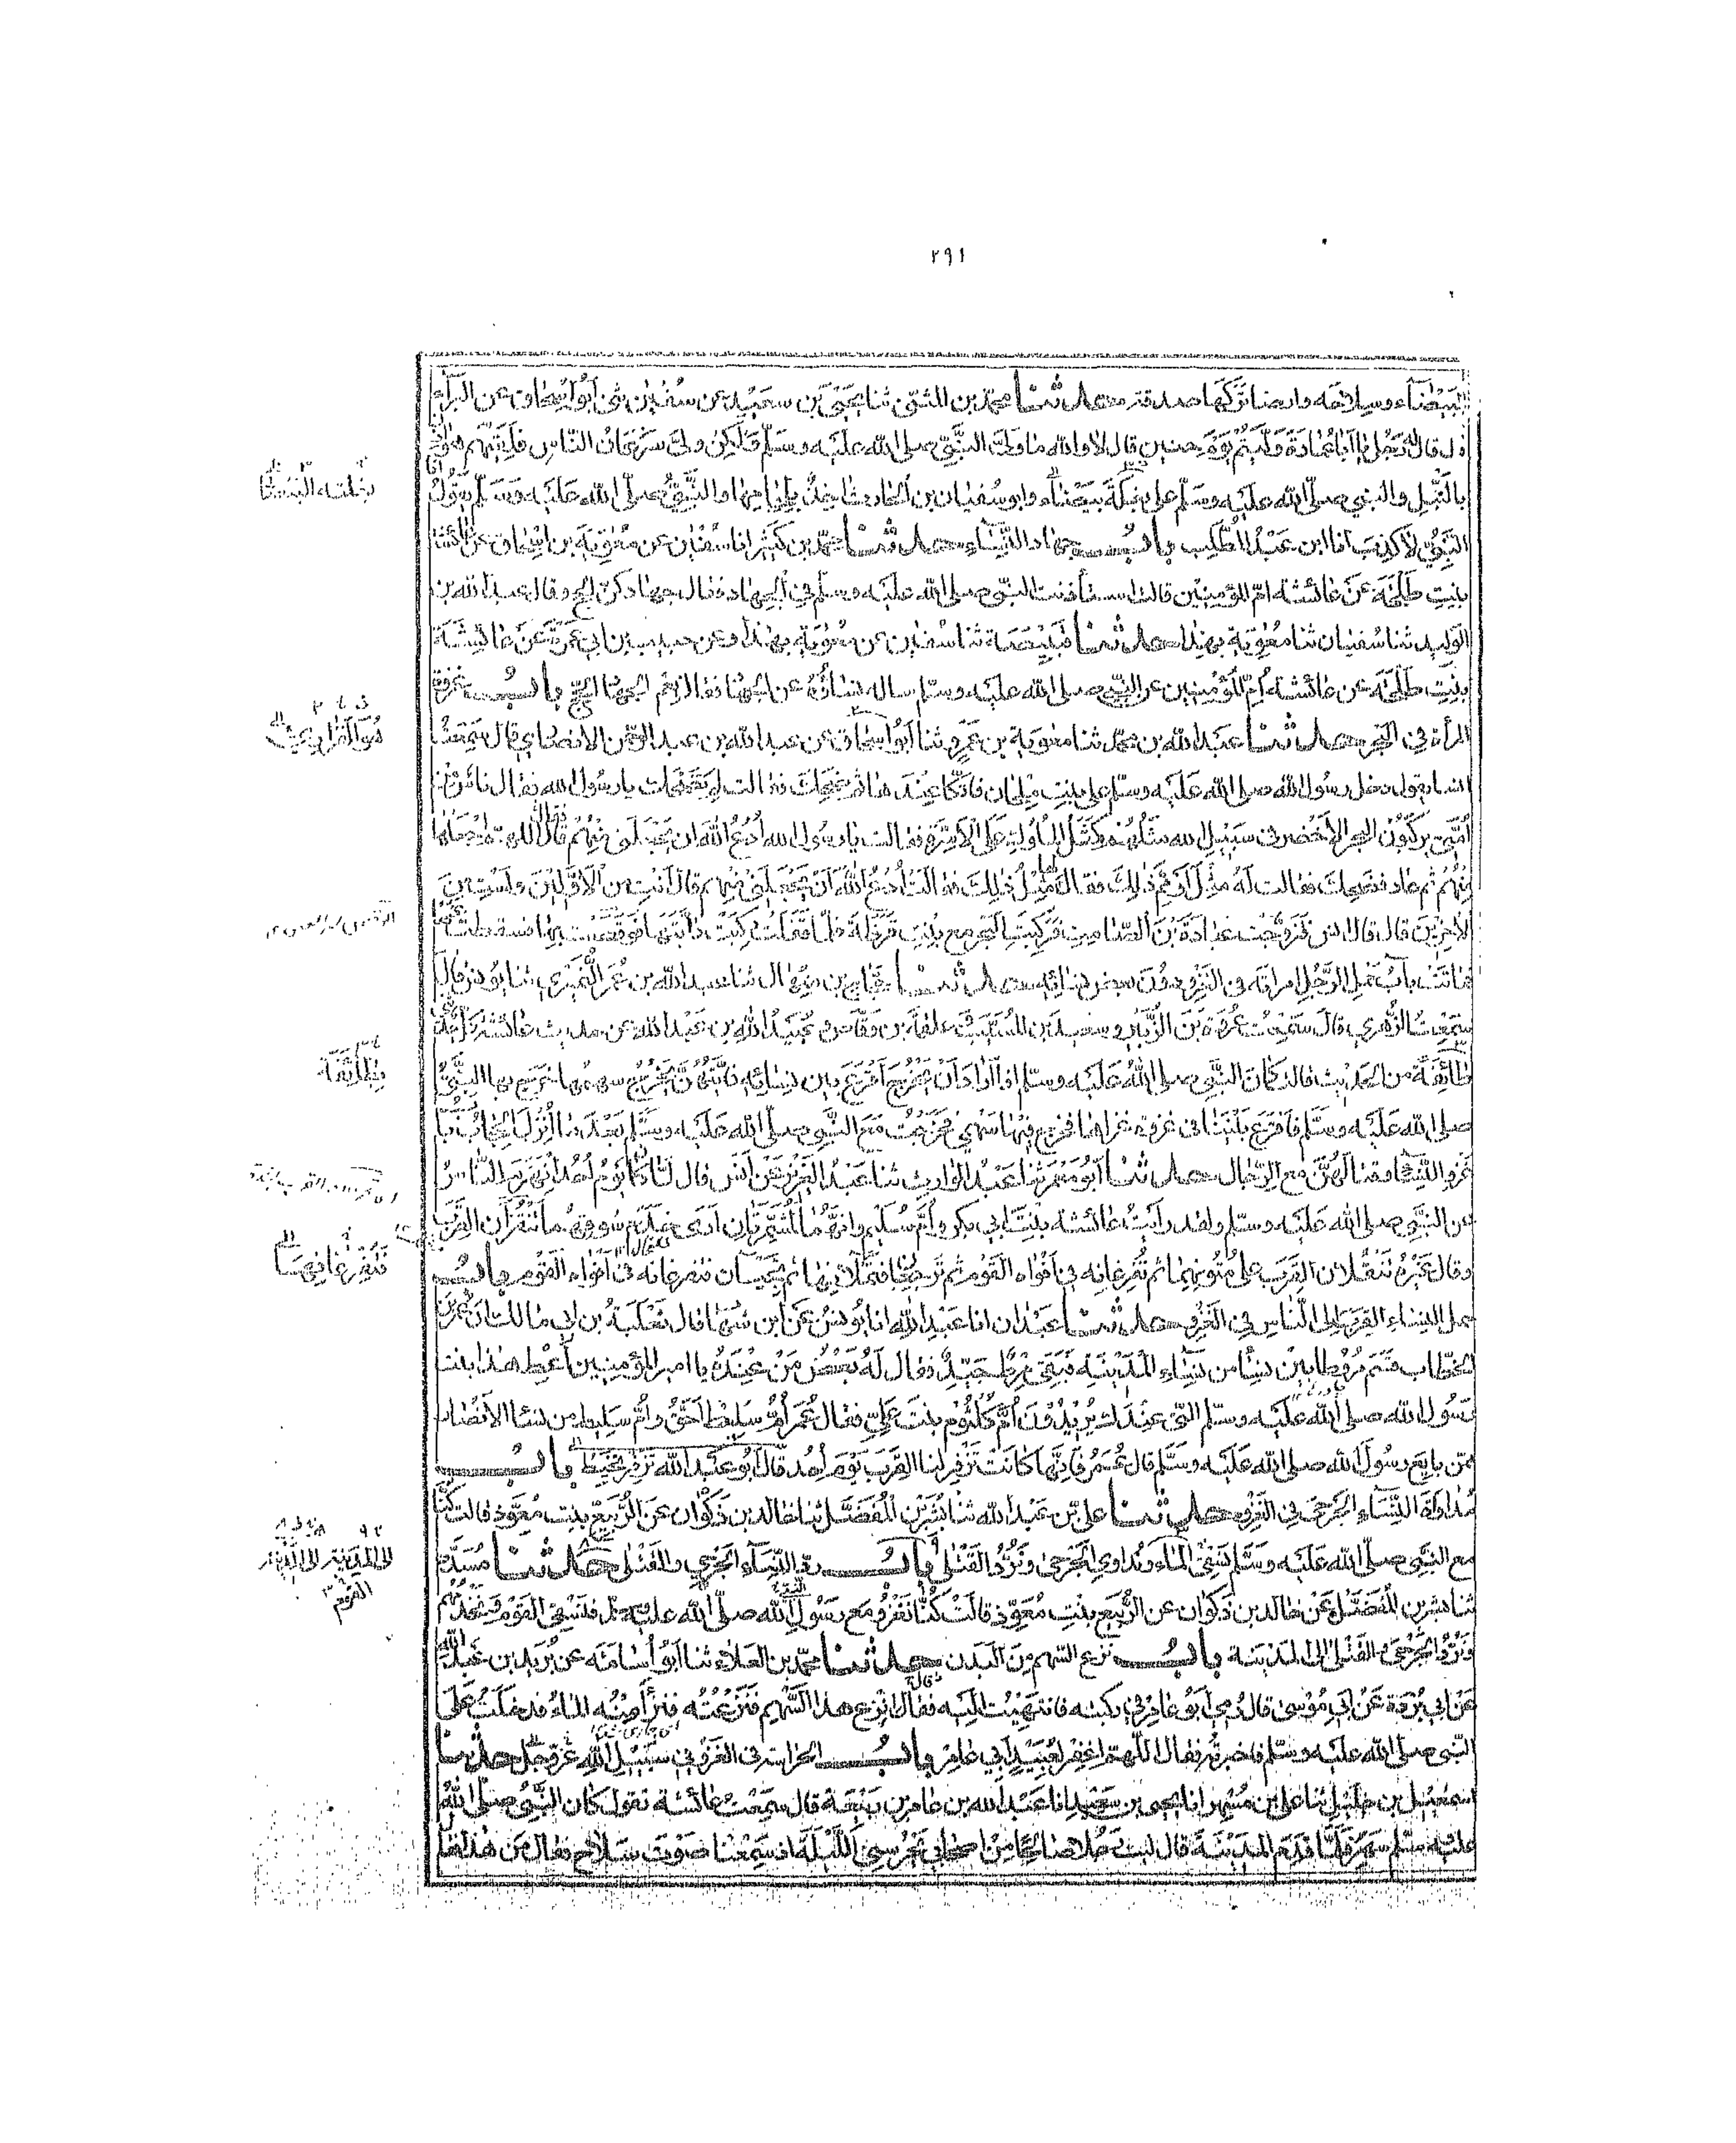 ٢٩١
البيضاء وسلاحه وارضا تركها صدقة حدثنا محمد بن المثنى ثنا يحيى بن سعيد عن سفين ثنى أبو اسحاق عن البراء
قال له رجل يا أبا عمارة وليتم يوم حنين قال لا والله ما ولى النبي صلى الله عليه وسلم ولكن ولى سرعان الناس فلقيهم هوازن
بالنبل والنبي صلى الله عليه وسلم على بغلة بيضاء وابو سفيان بن الحارث اخذ بلجامها والنبي صلى الله عليه وسلم يقول أنا
النبي لا كذب أنا ابن عبد المطلب باب جهاد النساء حدثنا محمد بن كثير انا سفين عن معوية بن اسحاق عن عائشة
بنت طلحة عن عائشة ام المؤمنين قالت استأذنت النبي صلى الله عليه وسلم في الجهاد فقال جهادكن الحج وقال عبد الله بن
الوليد ثنا سفيان ثنا معوية بهذا حدثنا قبيصة ثنا سفين عن معوية بهذا وعن حبيب بن ابي عمرة عن عائشة
بنت طلحة عن عائشة أم المؤمنين عن النبي صلى الله عليه وسلم ساله نساؤه عن الجهاد فقال نعم الجهاد الحج باب غزوة
المرأة في البحر حدثنا عبد الله بن محمد ثنا معوية بن عمرو ثنا أبو اسحاق عن عبد الله بن عبد الرحمن الانصاري قال سمعت
انسا يقول دخل رسول الله صلى الله عليه وسلم على بنت ملحان فاتكأ عندها ثم ضحك فقالت لم تضحك يا رسول الله فقال ناس من
أمتي يركبون البحر الأخضر في سبيل الله مثلهم كمثل الملوك على الأسرة فقالت يا رسول الله ادع الله ان يجعلني منهم قال اللهم اجعلها
منهم ثم عاد فضحك فقالت له مثل أو مم ذلك فقال لها مثل ذلك فقالت ادع الله أن يجعلني منهم قال أنت من الأولين ولست من
الآخرين قال قال انس فتزوجت عبادة بن الصامت فركبت البحر مع بنت قرظة فلما قفلت ركبت دابتها فوقصت بها فسقطت عنها
فماتت باب حمل الرجل امرأته في الغزو دون بعض نسائه حدثنا حجاج بن منهال ثنا عبد الله بن عمر النميري ثنا يونس قال
سمعت الزهري قال سمعت عروة بن الزبير وسعيد بن المسيب وعلقمة بن وقاص وعبيد الله بن عبد الله عن حديث عائشة كل حدثني
طائفة من الحديث قالت كان النبي صلى الله عليه وسلم اذا أراد أن يخرج أقرع بين نسائه فأيتهن يخرج سهمها خرج بها النبي
صلى الله عليه وسلم فأقرع بيننا في غزوة غزاها فخرج فيها سهمي فخرجت مع النبي صلى الله عليه وسلم بعد ما أنزل الحجاب باب
غزو النساء وقتالهن مع الرجال حدثنا أبو معمر ثنا عبد الوارث ثنا عبد العزيز عن أنس قال لما كان يوم أحد انهزم الناس
عن النبي صلى الله عليه وسلم ولقد رأيت عائشة بنت أبي بكر وأم سليم وانهما لمشمرتان أرى خدم سوقهما تنقزان القرب
وقال غيره تنقلان القرب على متونهما ثم تفرغانه في أفواه القوم ثم ترجعان فتملآنها ثم تجيئان فتفرغانه في أفواه القوم باب
حمل النساء القرب الى الناس في الغزو حدثنا عبدان انا عبد الله انا يونس عن ابن شهاب قال ثعلبة بن ابي مالك ان عمر بن
الخطاب قسم مروطا بين نساء من نساء المدينة فبقي مرط جيد فقال له بعض من عنده يا امير المؤمنين أعط هذا بنت
رسول الله صلى الله عليه وسلم التي عندك يريدون أم كلثوم بنت علي فقال عمر أم سليط احق وأم سليط من نساء الأنصار
ممن بايع رسول الله صلى الله عليه وسلم قال عمر فإنها كانت تزفر لنا القرب يوم أحد قال أبو عبد الله تزفر تخيط باب
مداواة النساء الجرحى في الغزو حدثنا علي بن عبد الله ثنا بشر بن المفضل ثنا خالد بن ذكوان عن الربيع بنت معوذ قالت كنا
مع النبي صلى الله عليه وسلم نسقي الماء ونداوي الجرحى ونرد القتلى باب رد النساء الجرحى والقتلى حدثنا مسدد
ثنا بشر بن المفضل عن خالد بن ذكوان عن الربيع بنت معوذ قالت كنا نغزو مع رسول الله صلى الله عليه وسلم فنسقي القوم ونخدمهم
ونرد الجرحى والقتلى الى المدينة باب نزع السهم من البدن حدثنا محمد بن العلاء ثنا أبو أسامة عن بريد بن عبد الله
عن ابي بردة عن أبي موسى قال رمي أبو عامر في ركبته فانتهيت اليه فقال انزع هذا السهم فنزعته فنزا منه الماء فدخلت على
النبي صلى الله عليه وسلم فاخبرته فقال اللهم اغفر لعبيد أبي عامر باب الحراسة في الغزو في سبيل الله عز وجل حدثنا
اسمعيل بن خليل ثنا علي بن مسهر انا يحيى بن سعيد انا عبد الله بن عامر بن ربيعة قال سمعت عائشة تقول كان النبي صلى الله
عليه وسلم سهر فلما قدم المدينة قال ليت رجلا صالحا من اصحابي يحرسني الليلة اذ سمعنا صوت سلاح فقال من هذا فقال
بغلته البيضاء
هو الفزاري
فتفرغانها
الى المدينة الى المدينة
القوم